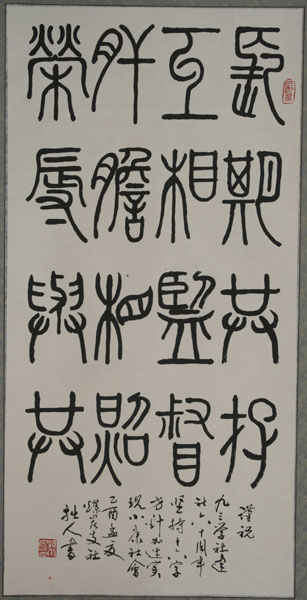 長期共存
互相監督
肝膽相照
榮辱與共
謹祝
九三学社建
社六十周年
坚持十六字
方針加速实
现小康社會
乙酉孟夏
支社
人書